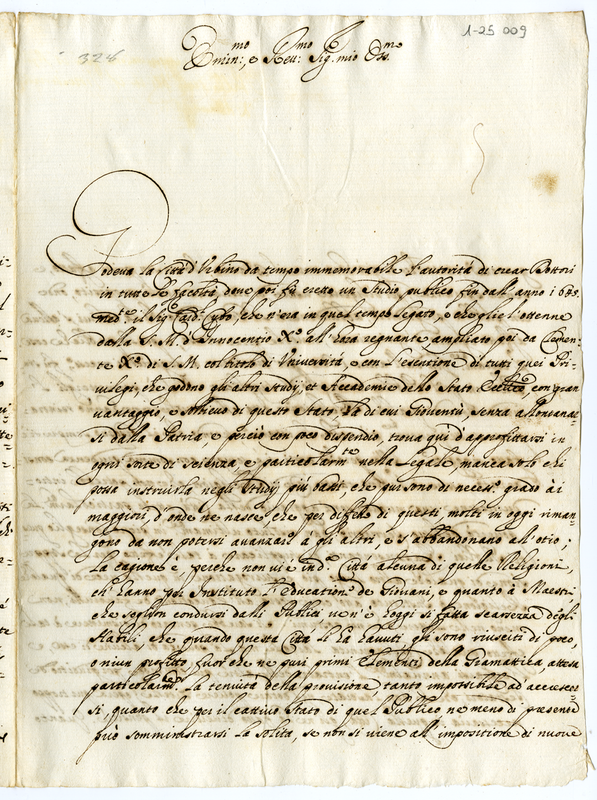 1-25 009
328
Emin:mo, e Reu:mo Sig.r mio Oss.mo
Godeua la Città d'Vrbino da tempo immemorabile l'autorità di crear Dottori
in tutte le facoltà, doue poi fù eretto un Studio publico fin dall'anno 1645.
med.te il Sig.r Card. Cybo, che n'era in quel tempo Legato, e che glie l'ottenne
dalla S. M. d'Innocentio X.o all'hora regnante ampliato poi da Clemen-
te X.o di S. M. col titolo di Vniuersità, e con l'esentione di tutti quei Pri-
uilegi, che godono gli altri Studij, et Accademie dello Stato con gran
uantaggio, e solleuo di questo Stato, la di cui Giouentù, senza allontanar-
si dalla Patria e perciò con poco dispendio, troua quì d'approfittarsi in
ogni sorte di scienza, e particolarm.te nella Legale, manca solo chi
possa instruirla negli Studij più bassi, che pur sono di necess.o grado ài
maggiori, d'onde ne nasce, che per difetto di questi molti in oggi riman-
gono da non potersi auanzare à gli altri, e s'abbandonano all'otio;
la cagione è, perche non ui è in d.a Città alcuna di quelle Religioni,
ch'hanno per Instituto l'educatione de Giouani, e quanto à Maestri
che soglion condursi dalli Publici ue n'è hoggi sì fatta scarsezza degli
habili, che quando questa Città li hà hauuti gli sono riusciti di poco,
o niun profitto, fuor che ne puri primi Elementi della Gramattica, attesa
particolarm.te la tenuità della prouisione, tanto impossibile ad accrescer-
si, quanto che per il cattiuo Stato di quel Publico ne meno di presente
può somministrarsi la solita, se non si uiene all'impositione di nuoue